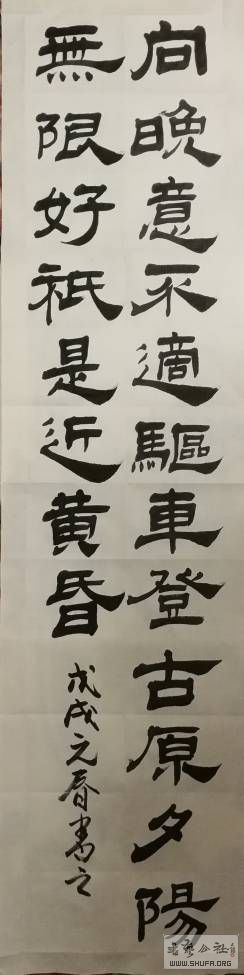 向晚意不適驅車登古原夕陽
無限好祇是近黄昏
戊戌元春書之
书艺公社
WWW.SHUFA.ORG